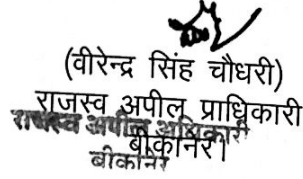 (वीरेन्द्र सिंह चौधरी)
राजस्व अपील प्राधिकारी
राजस्व अपील अधिकारी
बीकानेर।
बीकानेर